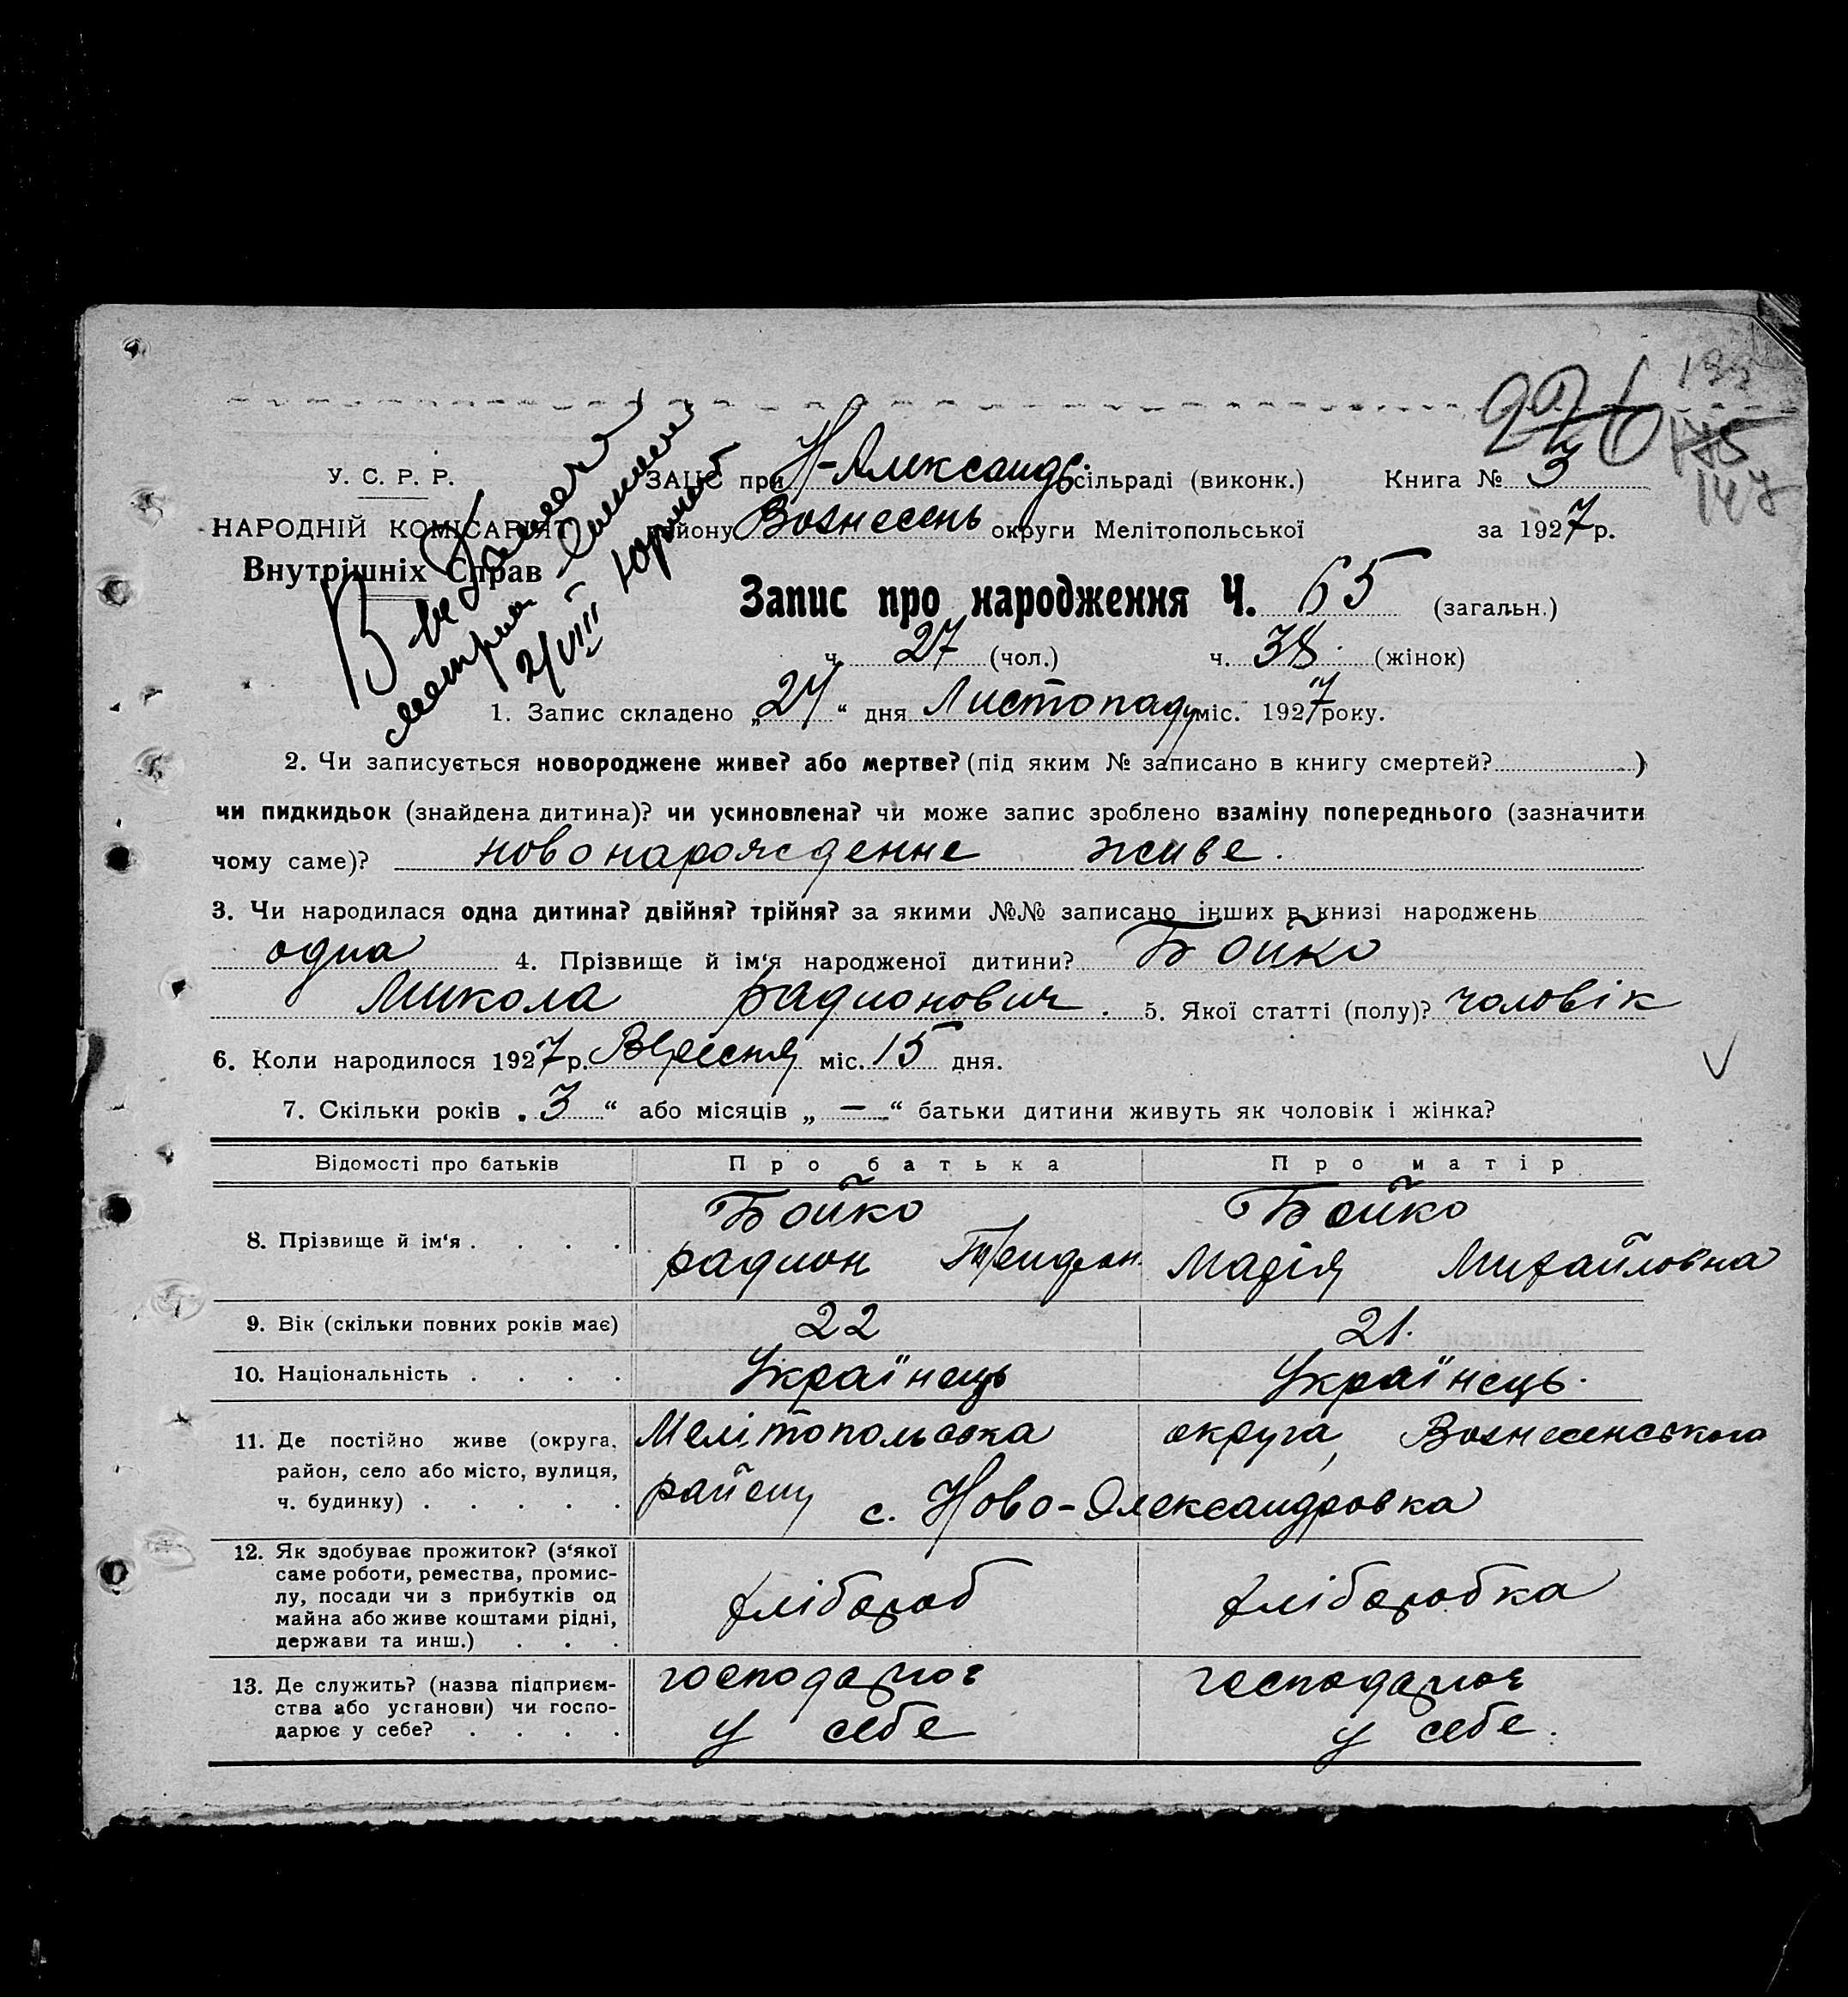 У. С. Р. Р.
НАРОДНІЙ КОМІСАРІЯТ
Внутрішніх Справ
2/VIII
ЗАПС при Н-Александр. сільраді (виконк.) Книга № 3
району Вознесень округи Мелітопольської за 1927 р.
147
Запис про народження Ч. 65 (загальн.)
ч. 27 (чол.) ч. 38. (жінок)
1. Запис складено „24“ дня Листопаду міс. 1927 року.
2. Чи записується новороджене живе? або мертве? (під яким № записано в книгу смертей? )
чи пидкидьок (знайдена дитина)? чи усиновлена? чи може запис зроблено взаміну попереднього (зазначити
чому саме)? новонарожденне живе.
3. Чи народилася одна дитина? двійня? трійня? за якими №№ записано інших в книзі народжень
одна 4. Прізвище й ім‘я народженої дитини? Бойко
Микола Радионович. 5. Якої статті (полу)? чоловік
6. Коли народилося 1927 р. Вересня міс. 15 дня.
7. Скільки років „3“ або місяців „—“ батьки дитини живуть як чоловік і жінка?
Відомості про батьків Про батька Про матір
8. Прізвище й ім‘я . . . . Бойко Бойко
Радион Марія Михайловна
9. Вік (скільки повних років має) 22 21.
10. Національність . . . . Українець Українець.
11. Де постійно живе (округа, Мелітопольська округа, Вознесенського
район, село або місто, вулиця, району с. Ново-Олександровка
ч. будинку) . . . . .
12. Як здобуває прожиток? (з‘якої
саме роботи, ремества, промис-
лу, посади чи з прибутків од хлібороб хліборобка
майна або живе коштами рідні,
держави та инш.) . . .
13. Де служить? (назва підприєм- господарює господарює
ства або установи) чи госпо-
дарює у себе? . . . . у себе у себе.